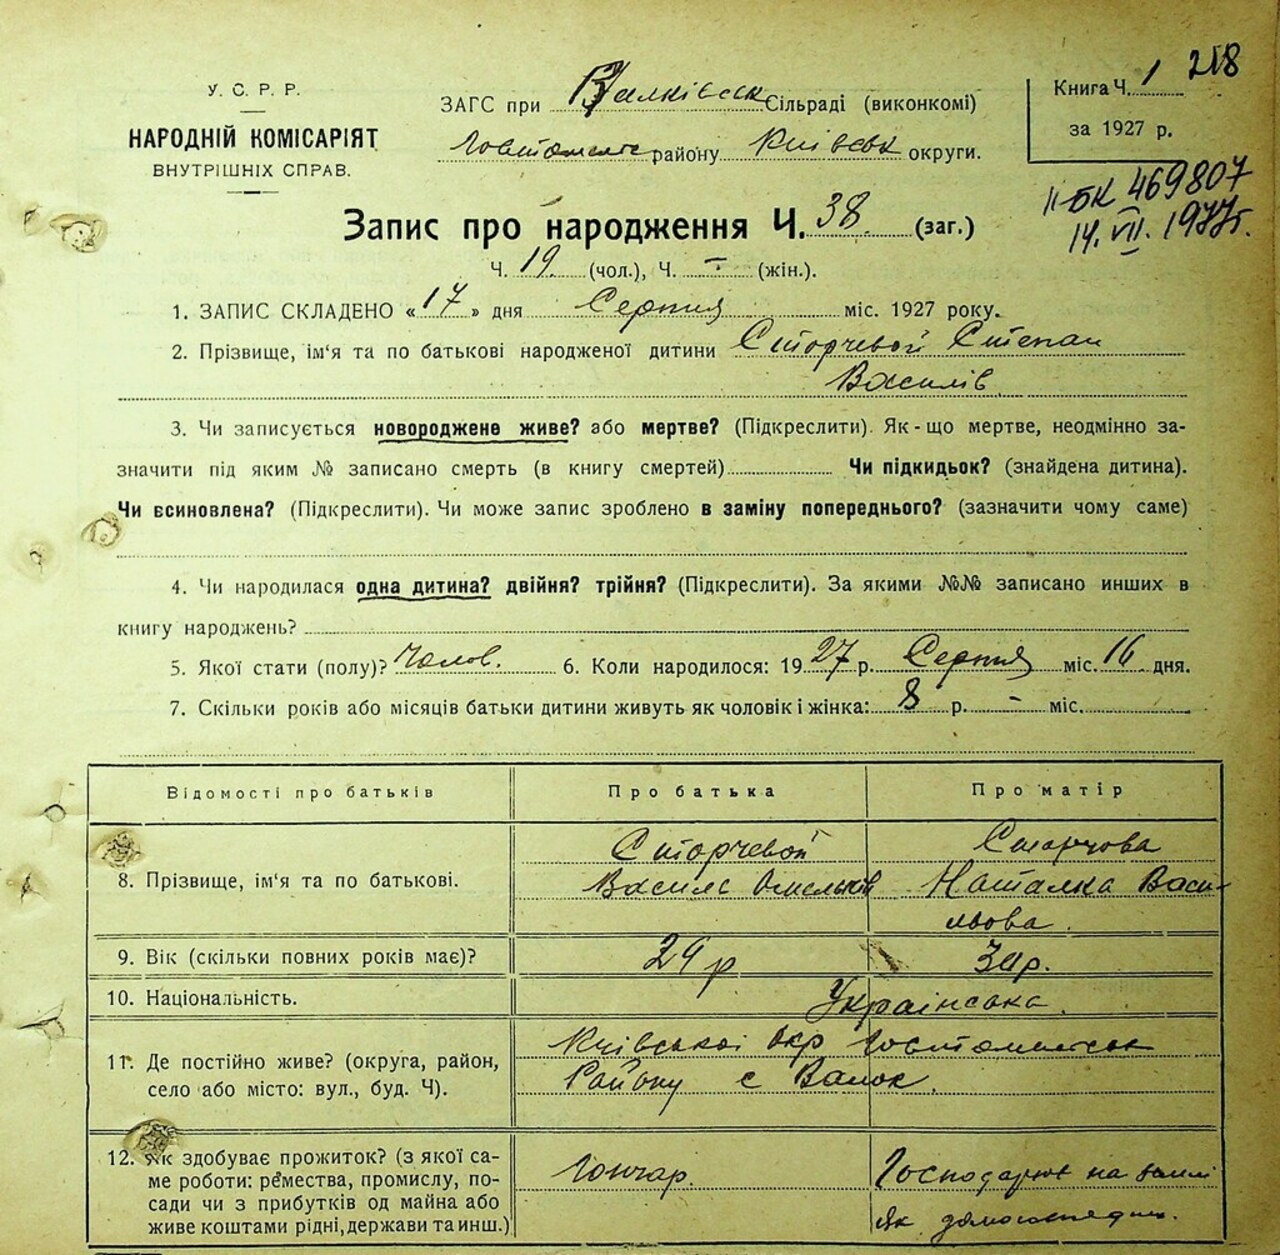 У. С. Р. Р.
НАРОДНІЙ КОМІСАРІЯТ
ВНУТРІШНІХ СПРАВ.
ЗАГС при Валківськ Сільраді (виконкомі)
району Київськ округи.
Книга Ч. 1 218
за 1927 р.
II-БК 469807
14. VII. 1977г.
Запис про народження Ч. 38 (заг.)
Ч. 19 (чол.), Ч. – (жін.).
1. ЗАПИС СКЛАДЕНО «17» дня Серпня міс. 1927 року.
2. Прізвище, ім'я та по батькові народженої дитини Сторчевой Степан
Василів
3. Чи записується новороджене живе? або мертве? (Підкреслити). Як-що мертве, неодмінно за-
значити під яким № записано смерть (в книгу смертей) Чи підкидьок? (знайдена дитина).
Чи всиновлена? (Підкреслити). Чи може запис зроблено в заміну попереднього? (зазначити чому саме)
4. Чи народилася одна дитина? двійня? трійня? (Підкреслити). За якими №№ записано инших в
книгу народжень?
5. Якої стати (полу)? Чолов. 6. Коли народилося: 1927 р. Серпня міс. 16 дня.
7. Скільки років або місяців батьки дитини живуть як чоловік і жінка: 8 р. – міс.
Відомості про батьків Про батька Про матір
8. Прізвище, ім'я та по батькові. Сторчевой Василь Омельків Сторчова Наталка Васи-
льова.
9. Вік (скільки повних років має)? 29 р 30 р.
10. Національність. Українська.
11. Де постійно живе? (округа, район, Київської Окр
село або місто: вул., буд. Ч). Району с Валок.
12. Як здобуває прожиток? (з якої са- Гончар. Господарює на землі
ме роботи: ремества, промислу, по-
сади чи з прибутків од майна або як
живе коштами рідні, держави та инш.)